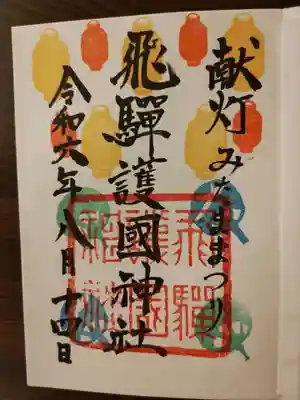 献灯みたままつり
飛驒護國神社
令和六年八月十四日
飛驒
護國
神社